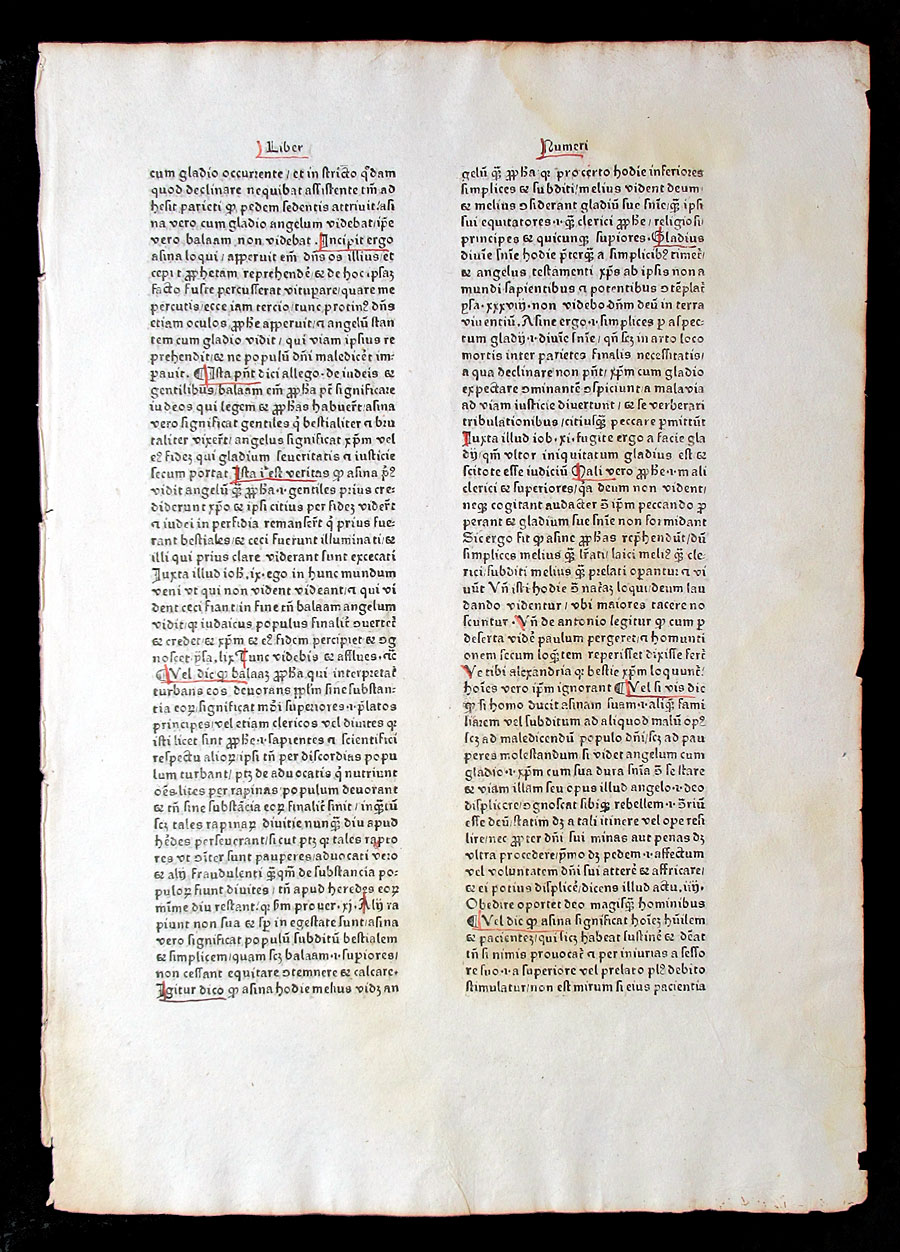 Liber
Numeri
cum gladio occurrente / et in stricto q̃dam
quod declinare nequibat assistente tm̃ ad
hesit parieti ꝙ pedem sedentis attriuit / asi
na vero cum gladio angelum videbat / ip̃e
vero balaam non videbat . Incipit ergo
asina loqui / apperuit em̃ dñs os illius / et
cepit ꝓphetam reprehendẽ ⁊ de hoc · ipsaꝫ
facto fuste percusserat vituꝑare / quare me
percutis / ecce iam tercio / tunc protinꝰ dñs
etiam oculos ꝓphẽ apperuit / ⁊ angelũ stan
tem cum gladio vidit / qui viam ipsius re
prehendit / ⁊ ne populũ dñi maledicẽt im-
ꝑauit . ¶ Ista pñt dici allego . de iudeis ⁊
gentilibus / balaam em̃ ꝓpħa pt̃ significare
iudeos qui legem ⁊ ꝓpħas habuert̃ / asina
vero significat gentiles q̇ bestialiter ⁊ bru
taliter vixert̃ / angelus significat xp̃m vel
eꝰ fideꝫ qui gladium seueritatis ⁊ iusticie
secum portat Ista iᵃ est veritas ꝙ asina pꝰ
vidit angelũ q̃ꝫ ꝓpħa · i · gentiles prius cre-
diderunt xp̃o ⁊ ipsi citius per fideꝫ vidert̃
⁊ iudei in perfidia remansert̃ q̇ prius fue-
rant bestiales / ⁊ ceci fuerunt illuminati / ⁊
illi qui prius clare viderant sunt excecati
Juxta illud ioħ . ix · ego in hunc mundum
veni vt qui non vident videant / ⁊ qui vi
dent ceci fiant / in fine tñ balaam angelum
vidit / qꝛ iudaicus populus finalit̃ ↄuertet̃
⁊ credet / ⁊ xp̃m ⁊ eꝰ fidem percipiet ⁊ ↄg
noscet / ysa . lix Tunc videbis ⁊ afflues . ⁊c̃
¶ Vel dic qꝛ balaaꝫ ꝓpħa qui interpretat̃
turbans eos deuorans pp̃lm sine substan-
tia eoꝝ significat mõi superiores · i · p̃latos
principes / vel etiam clericos vel diuites qꝛ
isti licet sint ꝓphẽ · i · sapientes ⁊ scientifici
respectu alioꝝ / ipsi tñ per discordias popu
lum turbant / ptꝫ de aduocatis q̇ nutriunt
oẽs lites per rapinas populum deuorant
⁊ tñ sine substãcia eoꝝ finalit̃ sinit / inq̃tũ
scꝫ tales rapinaꝝ diuitie nunq̃ꝫ diu apud
hẽdes perseuerant / sicut ptꝫ qꝛ tales rapto
res vt ↄĩter sunt pauperes / aduocati vero
⁊ alij fraudulenti q̃ꝫq̃m de substancia po-
puloꝝ fiunt diuites / tñ apud heredes eoꝝ
mĩme diu restant / qꝛ ẜm prouer . xj . Alij ra
piunt non sua ⁊ sp̃ in egestate sunt / asina
vero significat populũ subditũ bestialem
⁊ simplicem / quam scꝫ balaam · i · supiores /
non cessant equitare ↄtemnere ⁊ calcare .
Igitur dico ꝙ asina hodie melius vidꝫ an
gelũ q̃ꝫ ꝓpħa qꝛ pro certo hodie inferiores
simplices ⁊ subditi / melius vident deum
⁊ melius ↄsiderant gladiũ sue sñie / q̃ꝫ ipsi
sui equitatores · i · q̃ꝫ clerici ꝓphẽ / religiosi /
principes ⁊ quicunqꝫ supiores . Gladius
diuĩe sñie hodie p̃terq̃ꝫ a simplicibꝰ timet̃ /
⁊ angelus testamenti xp̃s ab ipsis non a
mundi sapientibus ⁊ potentibus ↄtẽplat̃
ysa . xxxviij . non videbo dñm deũ in terra
viuentiũ . Asine ergo · i · simplices p aspec-
tum gladij · i · diuĩe sñie / qñ scꝫ in arto loco
mortis inter parietes finalis necessitatis /
a qua declinare non pñt / xp̃m cum gladio
expectare ↄminantẽ ↄspiciunt / a mala via
ad viam iusticie diuertunt / ⁊ se verberari
tribulationibus / citiusq̃ꝫ peccare p̲mittũt
Juxta illud iob . xi . fugite ergo a facie gla
dij / qm̃ vltor iniquitatum gladius est ⁊
scitote esse iudiciũ Mali vero ꝓphẽ · i · mali
clerici ⁊ superiores / qa deum non vident /
neqꝫ cogitant audacter ↄ̃ ip̃m peccando ꝓ
perant ⁊ gladium sue sñie non formidant
Sic ergo fit ꝙ asine ꝓpħas rep̃hendũt / dũ
simplices melius q̃ꝫ lr̃ati / laici meliꝰ q̃ꝫ cle-
rici / subditi melius q̃ꝫ prelati opantur / ⁊ vi
uũt Vñ isti hodie ↄ̃ nat̃aꝫ loqui / deum lau
dando videntur / vbi maiores tacere no
scuntur . Vñ de antonio legitur ꝙ cum ꝑ
deserta vidẽ paulum pergeret / ⁊ homunti
onem secum loq̃tem reperisset dixisse fert̃
Ve tibi alexandria qꝛ bestie xp̃m loquunt̃ /
hoĩes vero ip̃m ignorant ¶ Vel si vis dic
ꝙ si homo ducit asinam suam · i · aliq̃ꝫ fami
liarem vel subditum ad aliquod malũ opꝰ
scꝫ ad maledicendũ populo dñi / scꝫ ad pau
peres molestandum si videt angelum cum
gladio · i · xp̃m cum sua dura sñia ↄ̃ se stare
⁊ viam illam seu opus illud angelo · i · deo
displicere / ↄgnoscat sibiqꝫ rebellem · i · ↄ̃riũ
esse deũ / statim dꝫ a tali itinere vel ope resi
lire / nec ꝓpter dñi sui minas aut penas dꝫ
vltra procedere / pᵒmo dꝫ pedem · i · affectum
vel voluntatem dñi sui atterẽ ⁊ affricare /
⁊ ei potius displicẽ / dicens illud actu . iiij .
Obedire oportet deo magisq̃ꝫ hominibus
¶ Vel dic ꝙ asina significat hoĩeꝫ hũilem
⁊ pacienteꝫ / qui licꝫ habeat sustinẽ ⁊ deẽat
tñ si nimis prouocat̃ ⁊ per iniurias a sesso
re suo · i · a superiore vel prelato plꝰ debito
stimulatur / non est mirum si eius pacientia